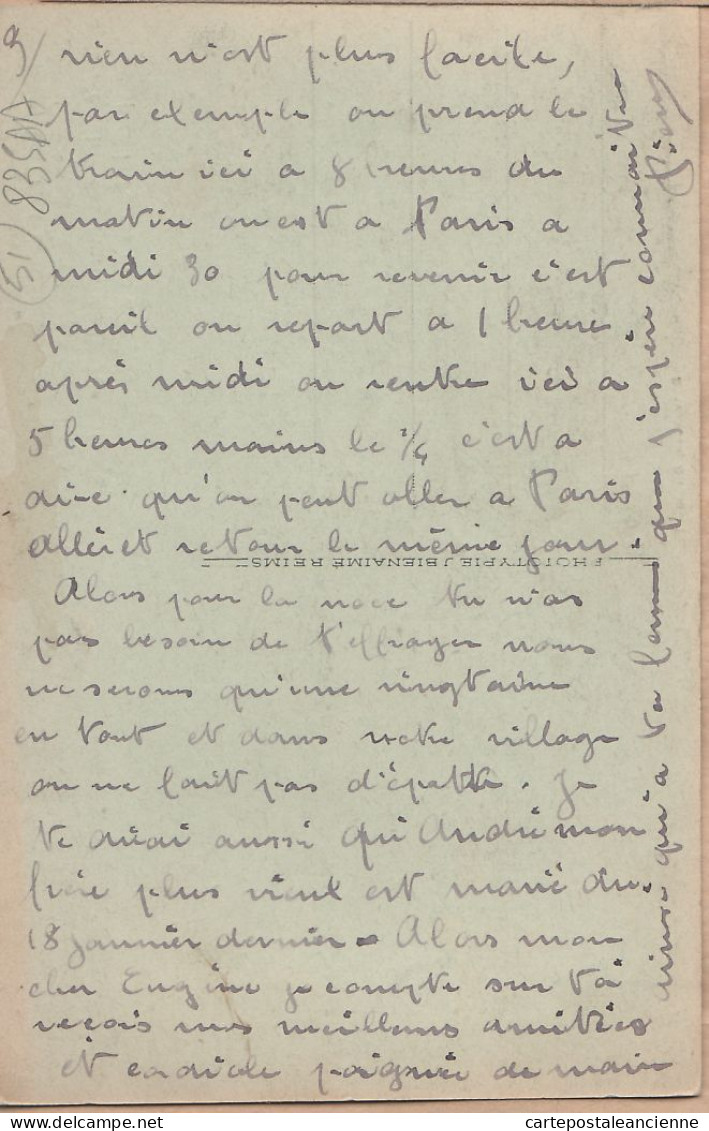 rien n'est plus facile,
par exemple on prend le
train ici a 8 heures du
matin on est a Paris a
midi 30 pour revenir c'est
pareil on repart a 1 heure
après midi on rentre ici a
5 heures moins le 1/4 c'est a
dire qu'on peut aller a Paris
aller et retour le même jour.
PHOTOTYPIE J. BIENAIMÉ REIMS
Alors pour la noce tu n'as
pas besoin de t'effrayer nous
ne serons qu'une vingtaine
en tout et dans notre village
on ne fait pas d'épatte. Je
te dirai aussi qu'André mon
frère plus vieux est marié du
18 janvier dernier - Alors mon
cher Eugène je compte sur toi
reçois mes meilleurs amitiés
et cordiale poignée de main
ainsi qu'a ta femme que j'espère connaitre
51
835AA
delcampe.net
cartepostaleancienne